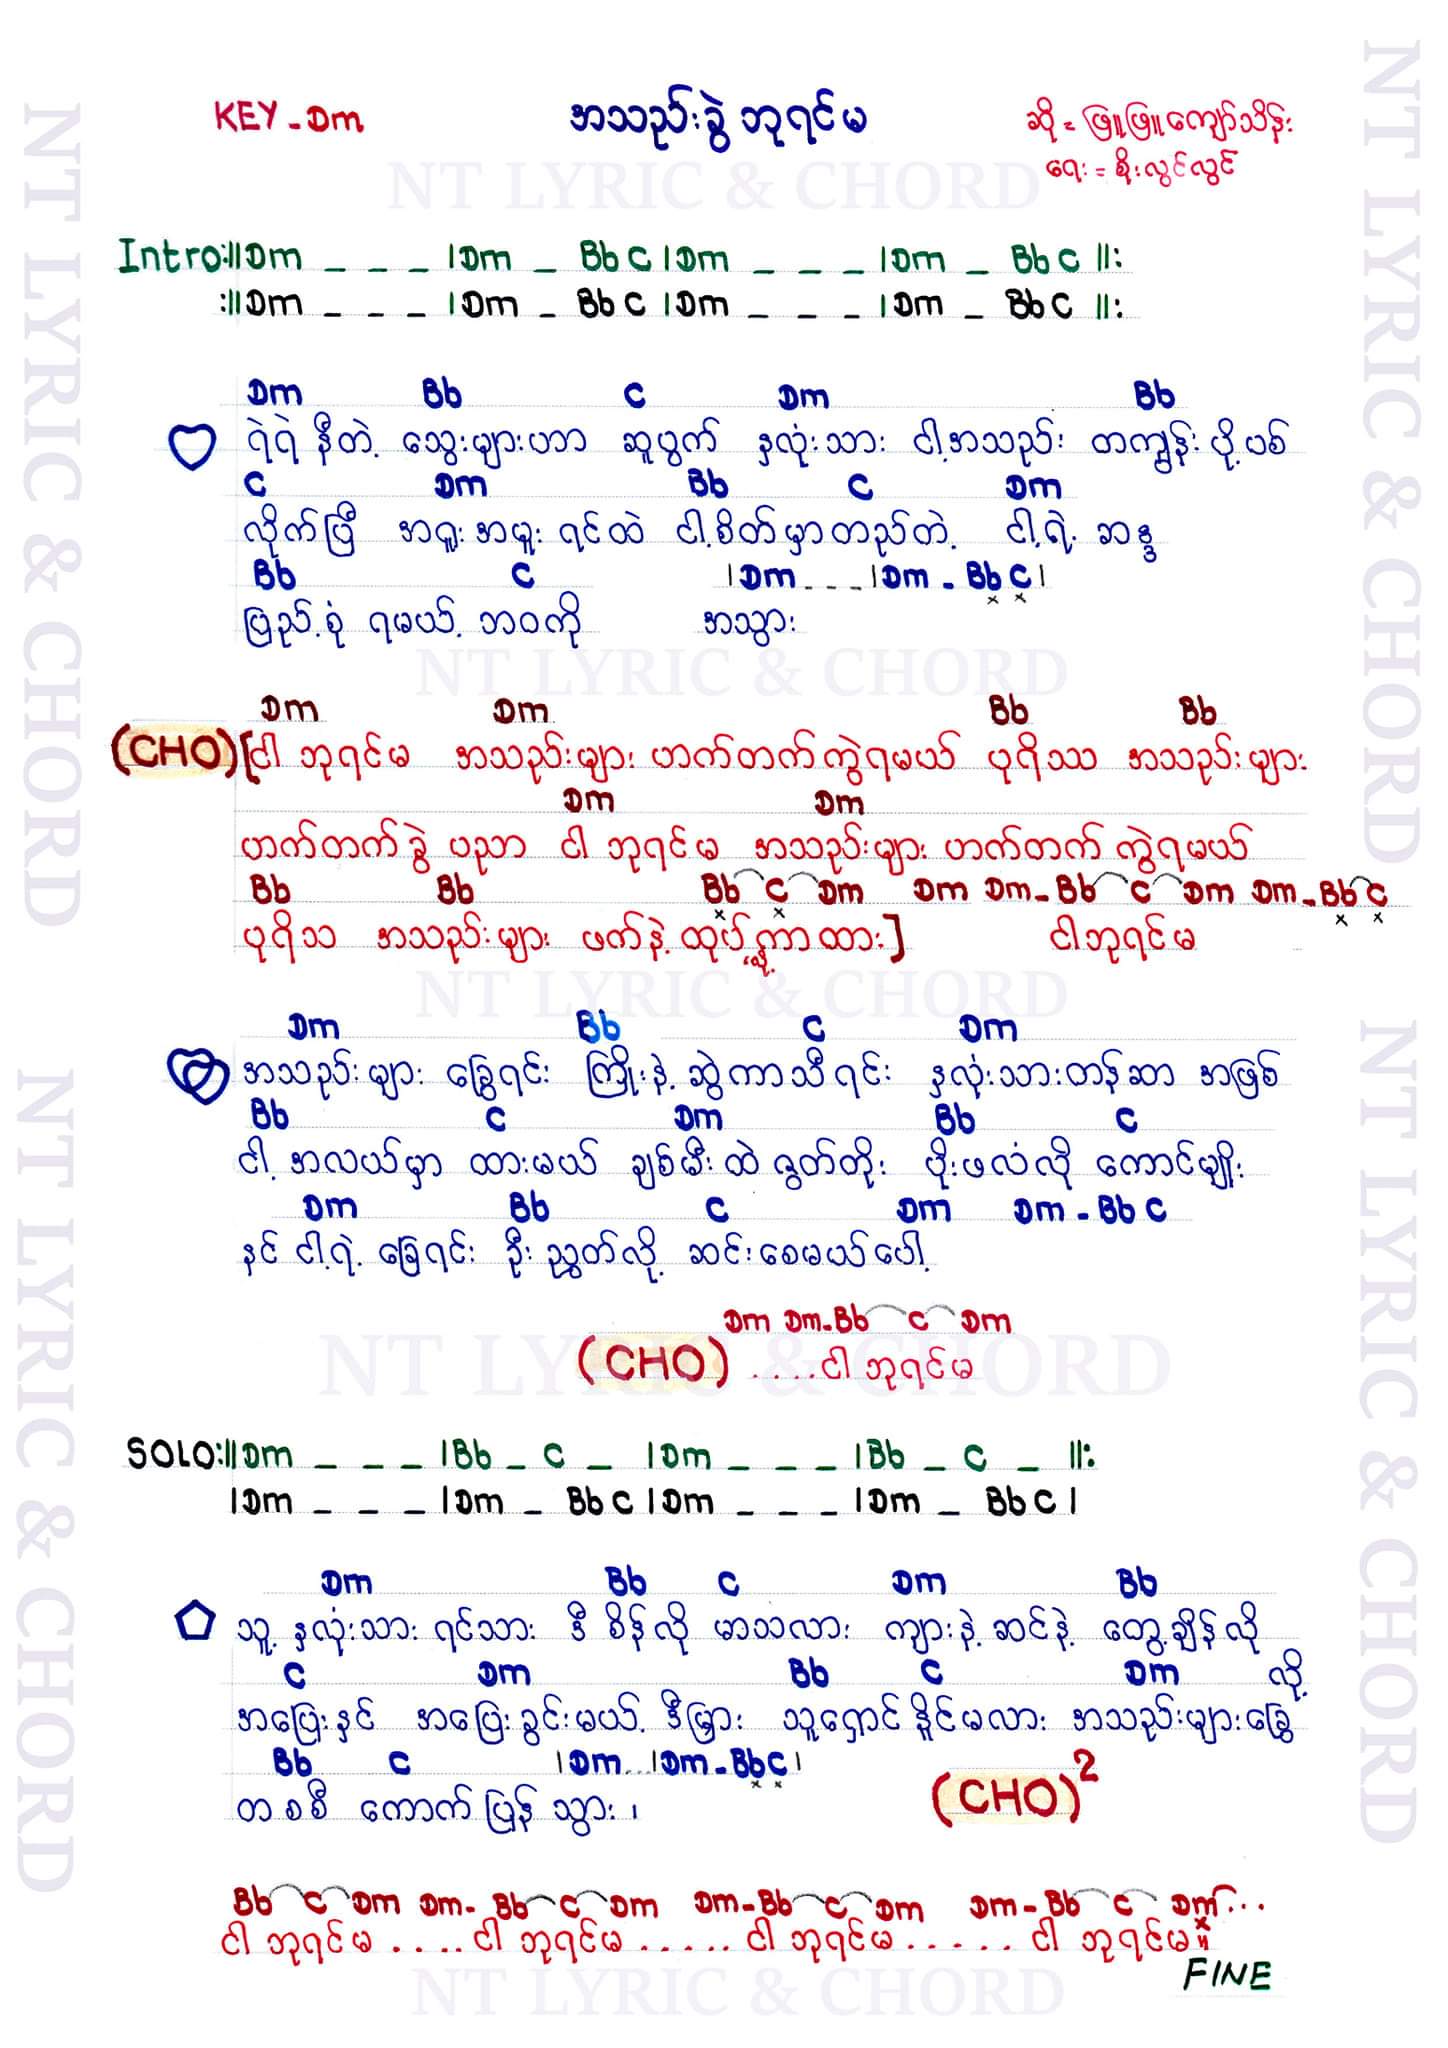 KEY - Dm
အသည်းခွဲ ဘုရင်မ
ဆို = ဖြူဖြူကျော်သိန်း
ရေး = စိုးလွင်လွင်
NT LYRIC & CHORD
Intro:||Dm _ _ _ |Dm _ Bb C |Dm _ _ _ |Dm _ Bb C ||:
:||Dm _ _ _ |Dm _ Bb C |Dm _ _ _ |Dm _ Bb C ||:
Dm Bb C Dm Bb
ရဲရဲ နီတဲ့ သွေးများဟာ ဆူပွက် နှလုံးသား ငါ့အသည်း တကျွန်း ပို့ပစ်
C Dm Bb C Dm
လိုက်ပြီ အရူးအမူး ရင်ထဲ ငါ့စိတ်မှာတည်တဲ့ ငါ့ရဲ့ ဆန္ဒ
Bb C |Dm...|Dm - Bb C|
ပြည့်စုံ ရမယ့် ဘဝကို အသွား
NT LYRIC & CHORD
Dm Dm Bb Bb
(CHO) [ငါ ဘုရင်မ အသည်းများ ဟက်တက်ကွဲရမယ် ပုရိသ အသည်းများ
Dm Dm
ဟက်တက်ခွဲ ပညာ ငါ ဘုရင်မ အသည်းများ ဟက်တက်ကွဲရမယ်
Bb Bb Bb C Dm Dm Dm - Bb C Dm Dm - Bb C
ပုရိသ အသည်းများ ဖက်နဲ့ ထုပ်လို့ကာထား] ငါဘုရင်မ
NT LYRIC & CHORD
Dm Bb C Dm
အသည်းများ ခြွေရင်း ကြိုးနဲ့ ဆွဲကာသီရင်း နှလုံးသားတန်ဆာ အဖြစ်
Bb C Dm Bb C
ငါ့ အလယ်မှာ ထားမယ် ချစ်မီးထဲ ဇွတ်တိုး ပိုးဖလံလို ကောင်မျိုး
Dm Bb C Dm Dm - Bb C
နင် ငါ့ရဲ့ ခြေရင်း ဦးညွှတ်လို့ ဆင်းစေမယ်ပေါ့
Dm Dm - Bb C Dm
(CHO) ....ငါ ဘုရင်မ
NT LYRIC & CHORD
SOLO:||Dm _ _ _ |Bb _ C _ |Dm _ _ _ |Bb _ C _ ||:
|Dm _ _ _ |Dm _ Bb C |Dm _ _ _ |Dm _ Bb C |
Dm Bb C Dm Bb
သူ့ နှလုံးသား ရင်သား ဒီ စိန်လို မာသလား ကျားနဲ့ ဆင်နဲ့ တွေ့ချိန်လို
C Dm Bb C Dm
အပြေးနှင် အပြေးခွင်းမယ့် ဒီမြှား သူရှောင်နိုင်မလား အသည်းများခြွေ လို့
Bb C |Dm...|Dm - Bb C|
တစစီ ကောက်ပြန် သွား ၊ (CHO)²
Bb C Dm Dm - Bb C Dm Dm - Bb C Dm Dm - Bb C Dm...
ငါ ဘုရင်မ .... ငါ ဘုရင်မ ..... ငါ ဘုရင်မ ...... ငါ ဘုရင်မ
FINE
NT LYRIC & CHORD
NT LYRIC & CHORD
NT LYRIC & CHORD
NT LYRIC & CHORD
NT LYRIC & CHORD